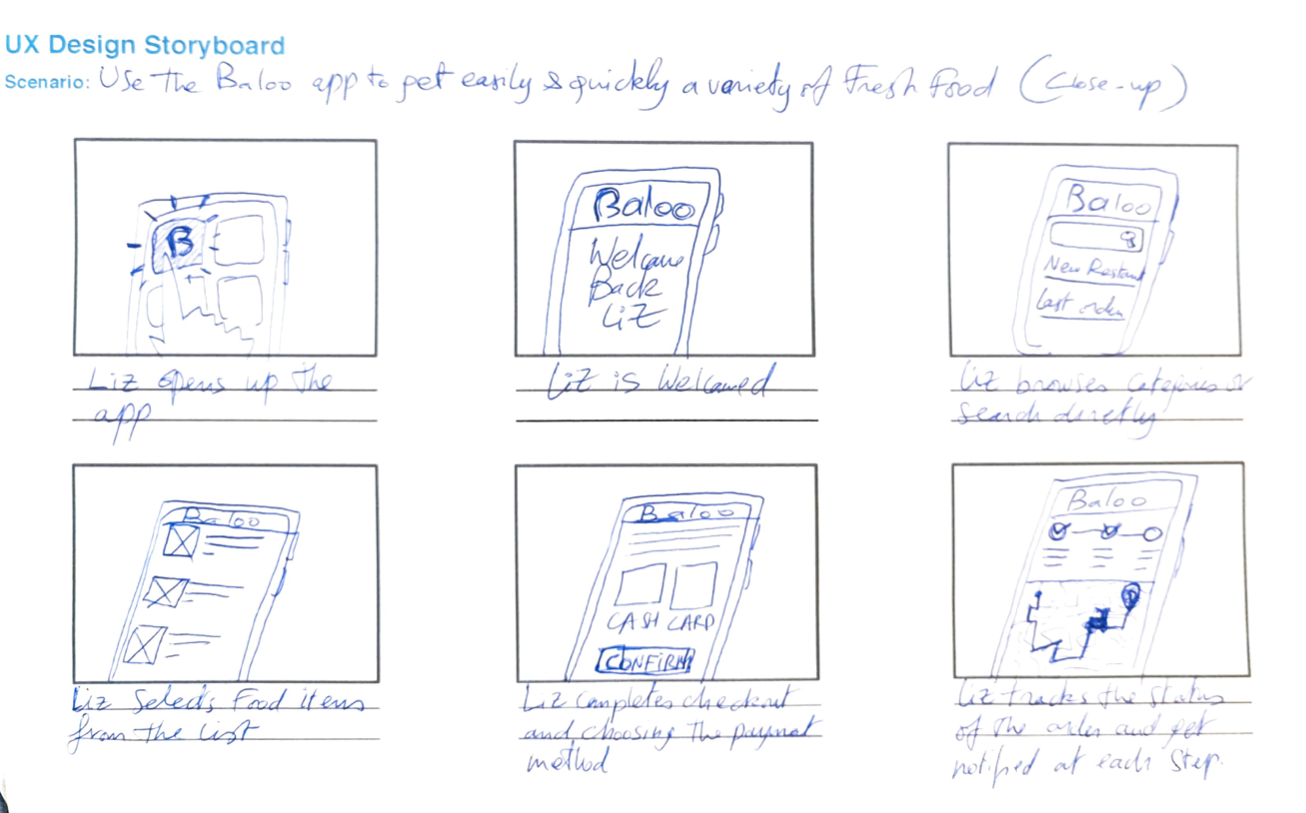 UX Design Storyboard
Scenario: Use the Baloo app to get easily & quickly a variety of Fresh Food (Close-up)
B
Liz opens up the
app
Baloo
Welcome
Back
Liz
Liz is Welcomed
Baloo
New Restau
Last order
Liz browses categories or
search directly
Baloo
Liz Selects Food items
from the list
Baloo
CASH CARD
CONFIRM
Liz completes checkout
and choosing the payment
method
Baloo
Liz tracks the status
of the order and get
notified at each step.